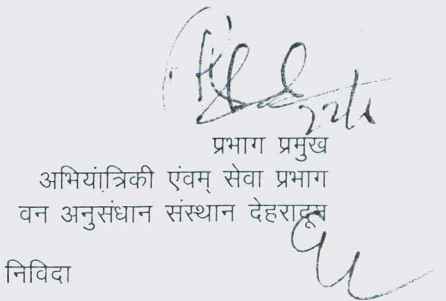 22/1
प्रभाग प्रमुख
अभियांत्रिकी एंवम् सेवा प्रभाग
वन अनुसंधान संस्थान देहरादून
निविदा